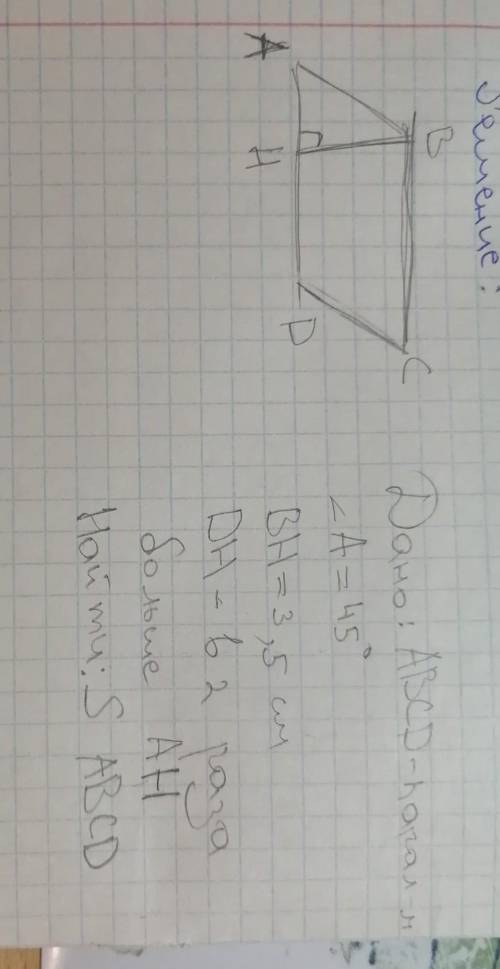 Решение:
A
B
H
D
C
Дано: ABCD-парал-м
∠A=45°
BH=3,5 см
DH - в 2 раза
больше AH
Найти: S ABCD